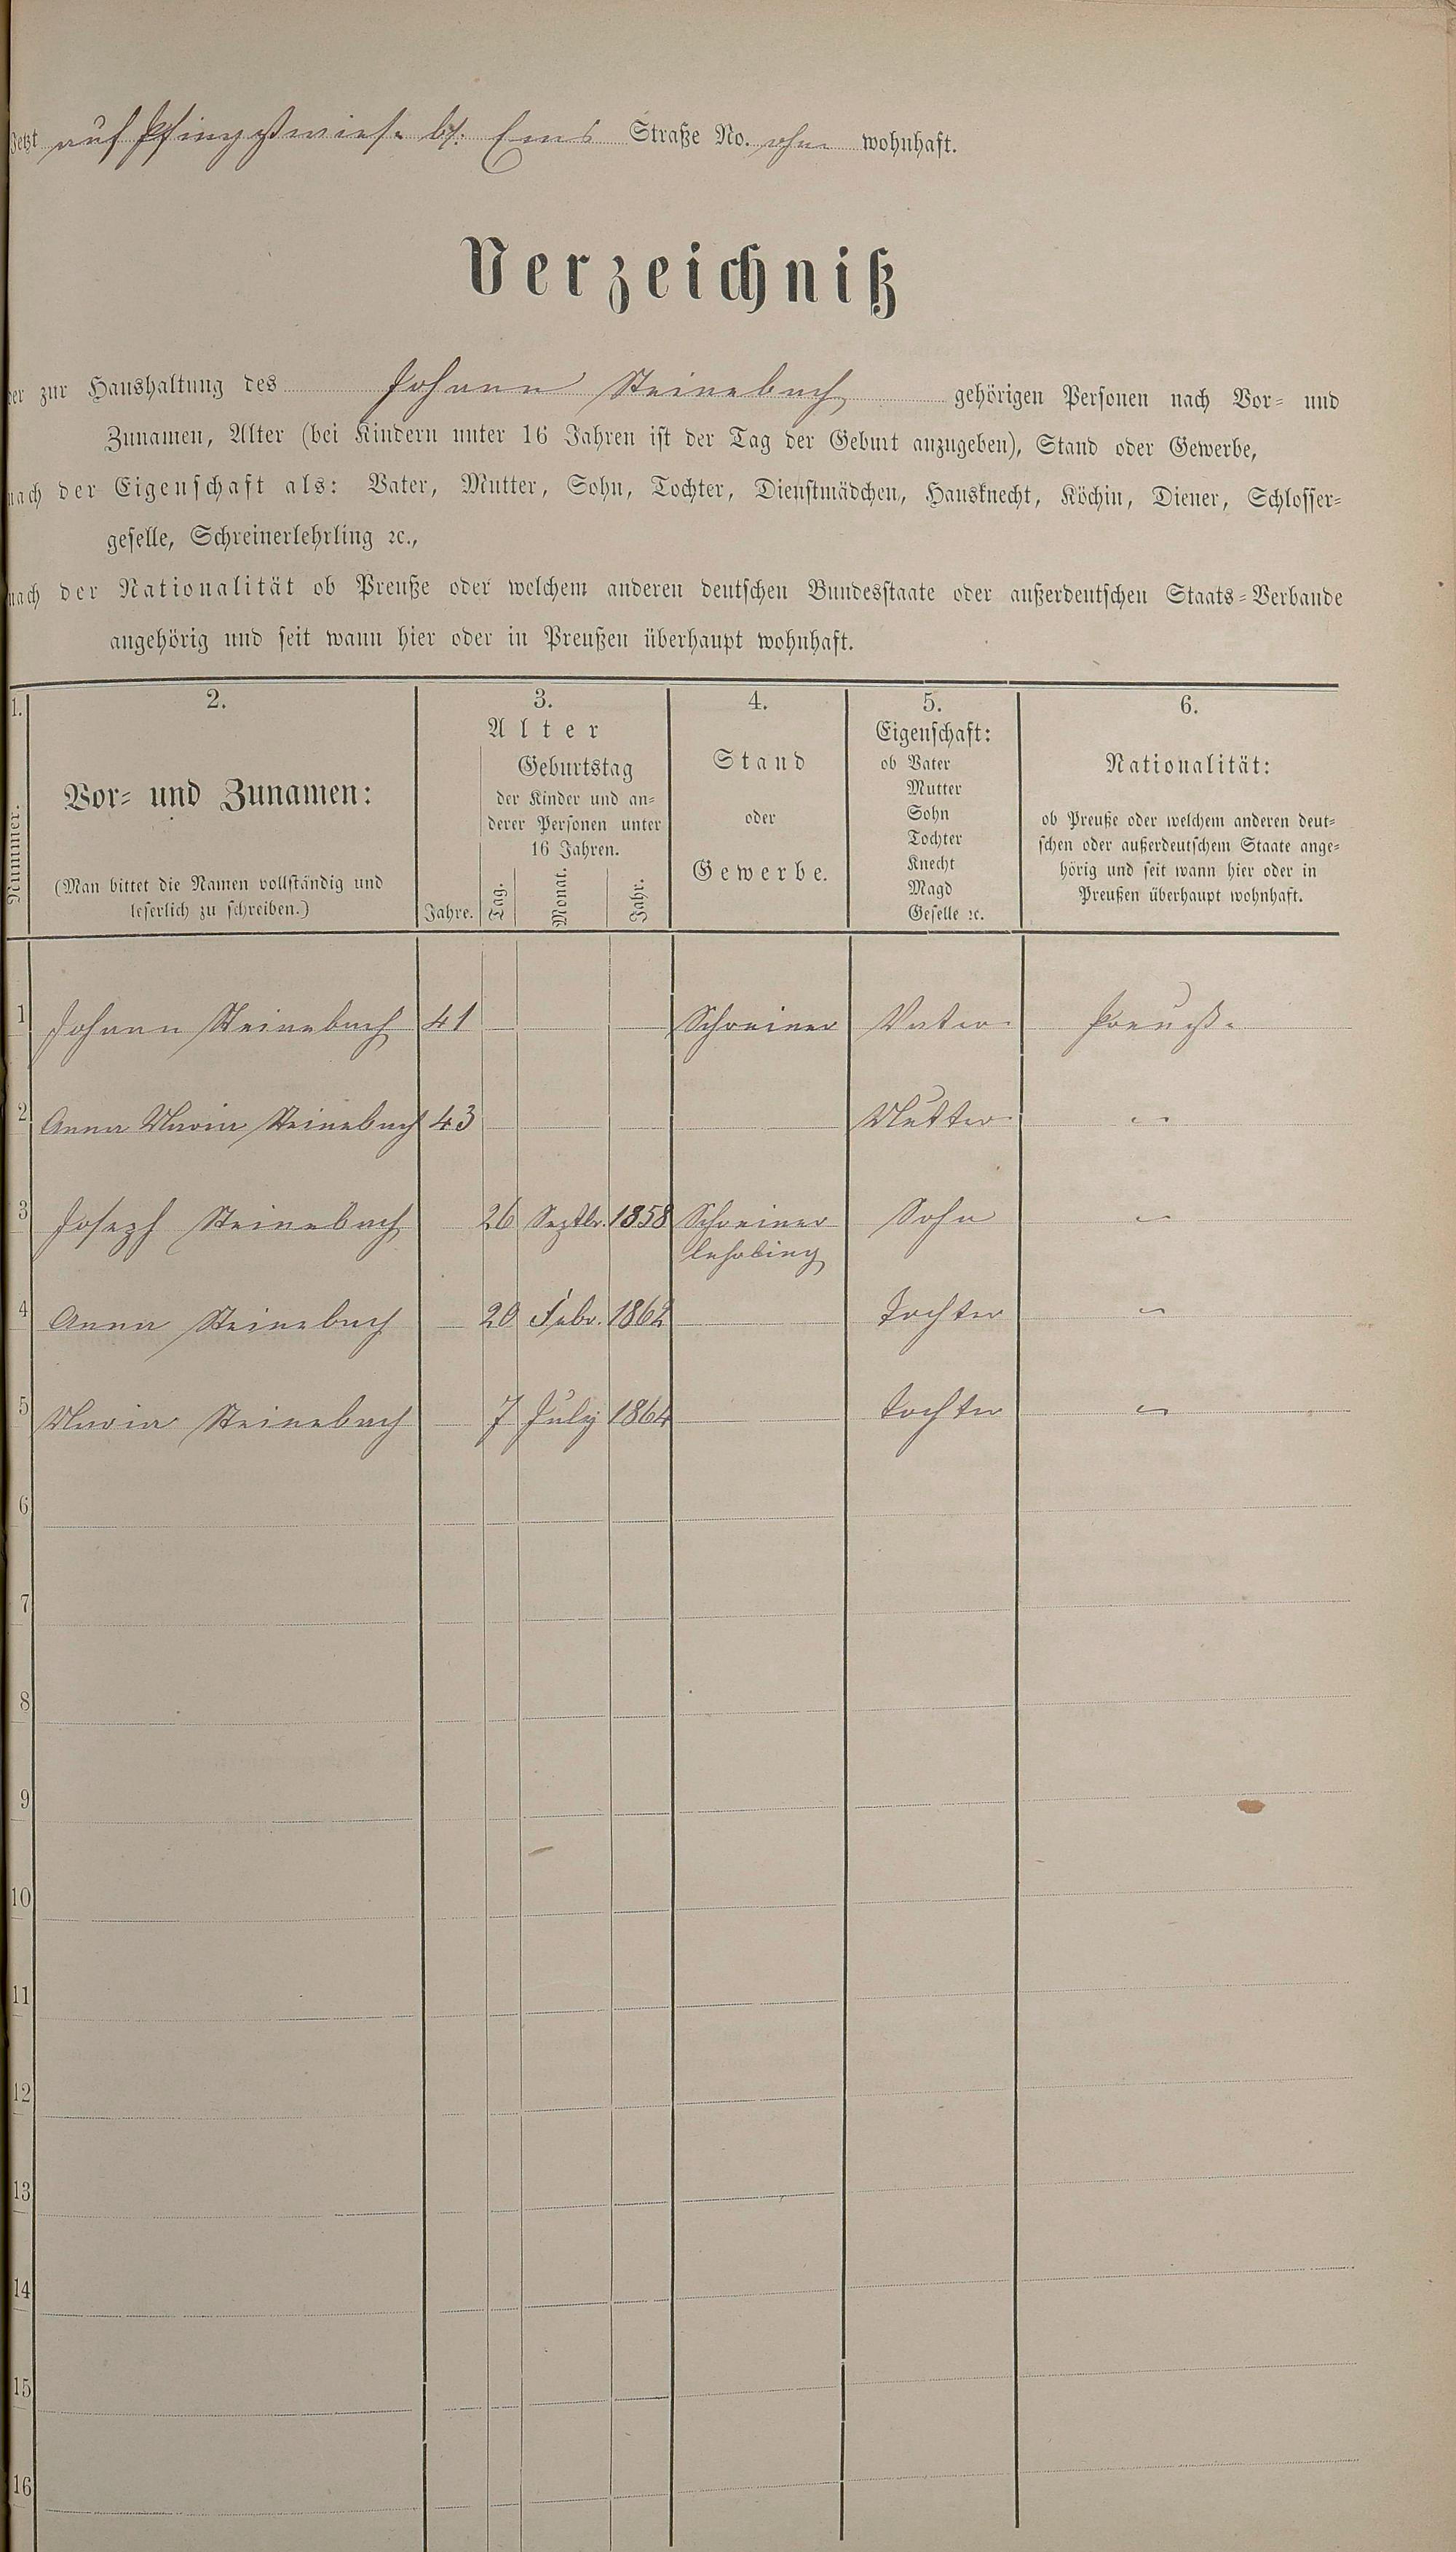 Jetzt auf Pfingstwiese bf. Ems Straße No. ohne wohnhaft.
Verzeichniß
der zur Haushaltung des Johann Steinebach gehörigen Personen nach Vor- und
Zunamen, Alter (bei Kindern unter 16 Jahren ist der Tag der Geburt anzugeben), Stand oder Gewerbe,
nach der Eigenschaft als: Vater, Mutter, Sohn, Tochter, Dienstmädchen, Hausknecht, Köchin, Diener, Schlosser-
geselle, Schreinerlehrling ꝛc.,
nach der Nationalität ob Preuße oder welchem anderen deutschen Bundesstaate oder außerdeutschen Staats-Verbande
angehörig und seit wann hier oder in Preußen überhaupt wohnhaft.
1. 2. 3. 4. 5. 6.
Nummer.
Vor- und Zunamen:
(Man bittet die Namen vollständig und
leserlich zu schreiben.)
Alter
Geburtstag
der Kinder und an-
derer Personen unter
16 Jahren.
Jahre. Tag. Monat. Jahr.
Stand
oder
Gewerbe.
Eigenschaft:
ob Vater
Mutter
Sohn
Tochter
Knecht
Magd
Geselle ꝛc.
Nationalität:
ob Preuße oder welchem anderen deut-
schen oder außerdeutschem Staate ange-
hörig und seit wann hier oder in
Preußen überhaupt wohnhaft.
1 Johann Steinebach 41 Schreiner Vater Preuße
2 Anna Maria Steinebach 43 Mutter "
3 Joseph Steinebach 26 Septbr. 1858 Schreiner Sohn "
lehrling
4 Anna Steinebach 20 Febr. 1862 Tochter "
5 Maria Steinebach 7 July 1864 Tochter "
6
7
8
9
10
11
12
13
14
15
16